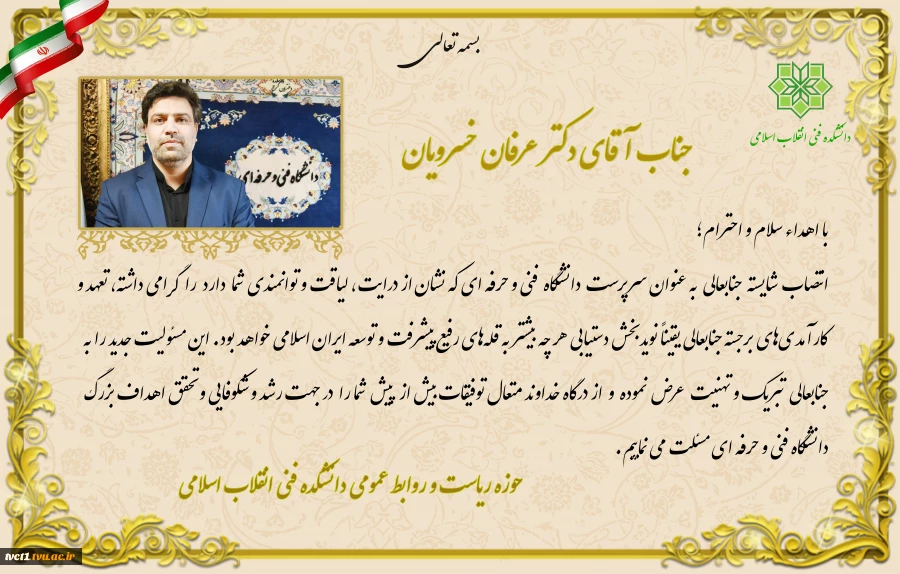 بسمه تعالی
دانشکده فنی انقلاب اسلامی
جناب آقای دکتر عرفان خسرویان
دانشگاه فنی و حرفه ای
با اهداء سلام و احترام؛
انتصاب شایسته جنابعالی به عنوان سرپرست دانشگاه فنی و حرفه ای که نشان از درایت، لیاقت و توانمندی شما دارد را گرامی داشته، تعهد و
کارآمدی‌های برجستهٔ جنابعالی یقیناً نویدبخش دستیابی هر چه بیشتر به قله‌های رفیع پیشرفت و توسعه ایران اسلامی خواهد بود. این مسئولیت جدید را به
جنابعالی تبریک و تهنیت عرض نموده و از درگاه خداوند متعال توفیقات بیش از پیش شما را در جهت رشد و شکوفایی و تحقق اهداف بزرگ
دانشگاه فنی و حرفه ای مسئلت می نماییم.
حوزه ریاست و روابط عمومی دانشکده فنی انقلاب اسلامی
tvct1.tvu.ac.ir